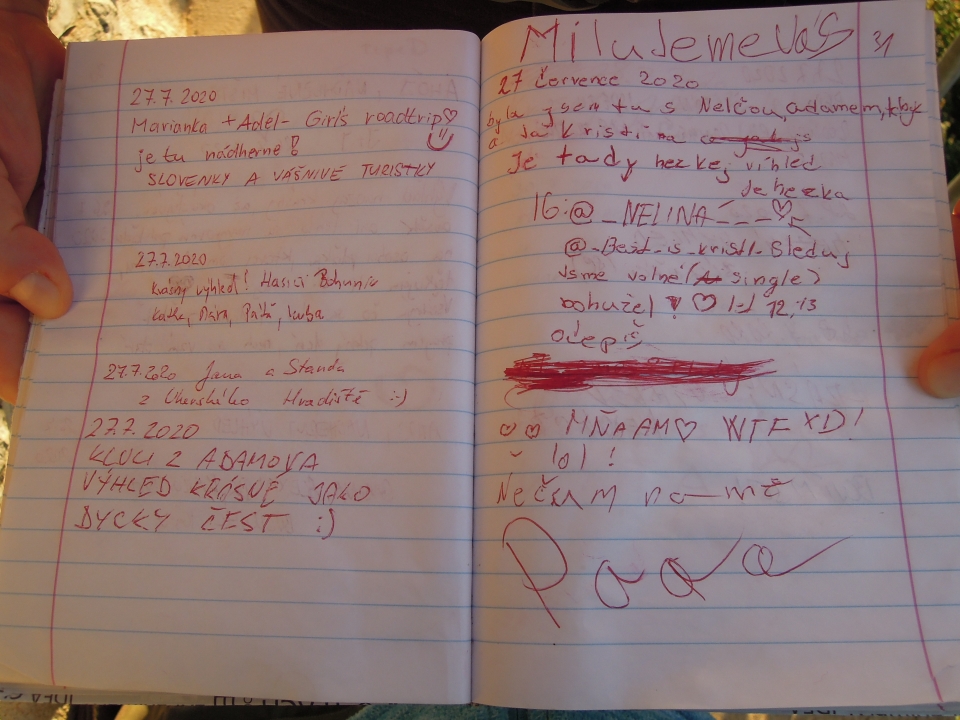 27.7.2020
Marianka + Adél - Girls roadtrip♡
je tu nádherne!
SLOVENKY A VÁŠNIVÉ TURISTKY
27.7.2020
krásný výhled! Hasiči Bohunice
Katka, Mára, Kuba
27.7.2020 Jana a Standa
z Uherského Hradiště :-)
27.7.2020
KLUCI Z ADAMOVA
VÝHLED KRÁSNÉ JAKO
DYCKY ČEST :)
Milujeme Vás 31
27 července 2020
byla jsem tu s Nelčou, adamem,
a Já Kristina
Je tady hezkej vihled
Je hezka
16:@_NELINA____♡
@_Best_is_kristl_Sleduj
Jsme volné (single)
bohužel ! ♡ 12, 13
odepiš
MŇAAM♡ WTF XD!
lol!
Nečum na-mě
Paaa